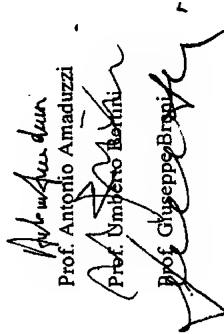 Prof. Antonio Amaduzzi
Prof. Umberto Bertini
Prof. Giuseppe Bruni